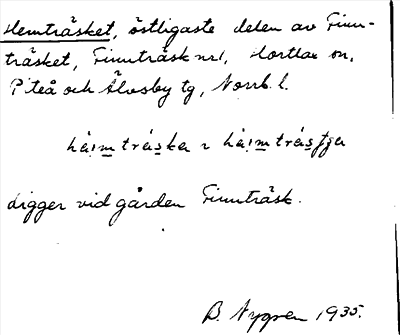 Hemträsket, östligaste delen av Finn-
träsket, Finnträsk nr 1, Hortlax sn,
Piteå och Älvsby tg, Norrb. l.
håim tráska
ligger vid gården Finnträsk.
B. Nygren 1935.